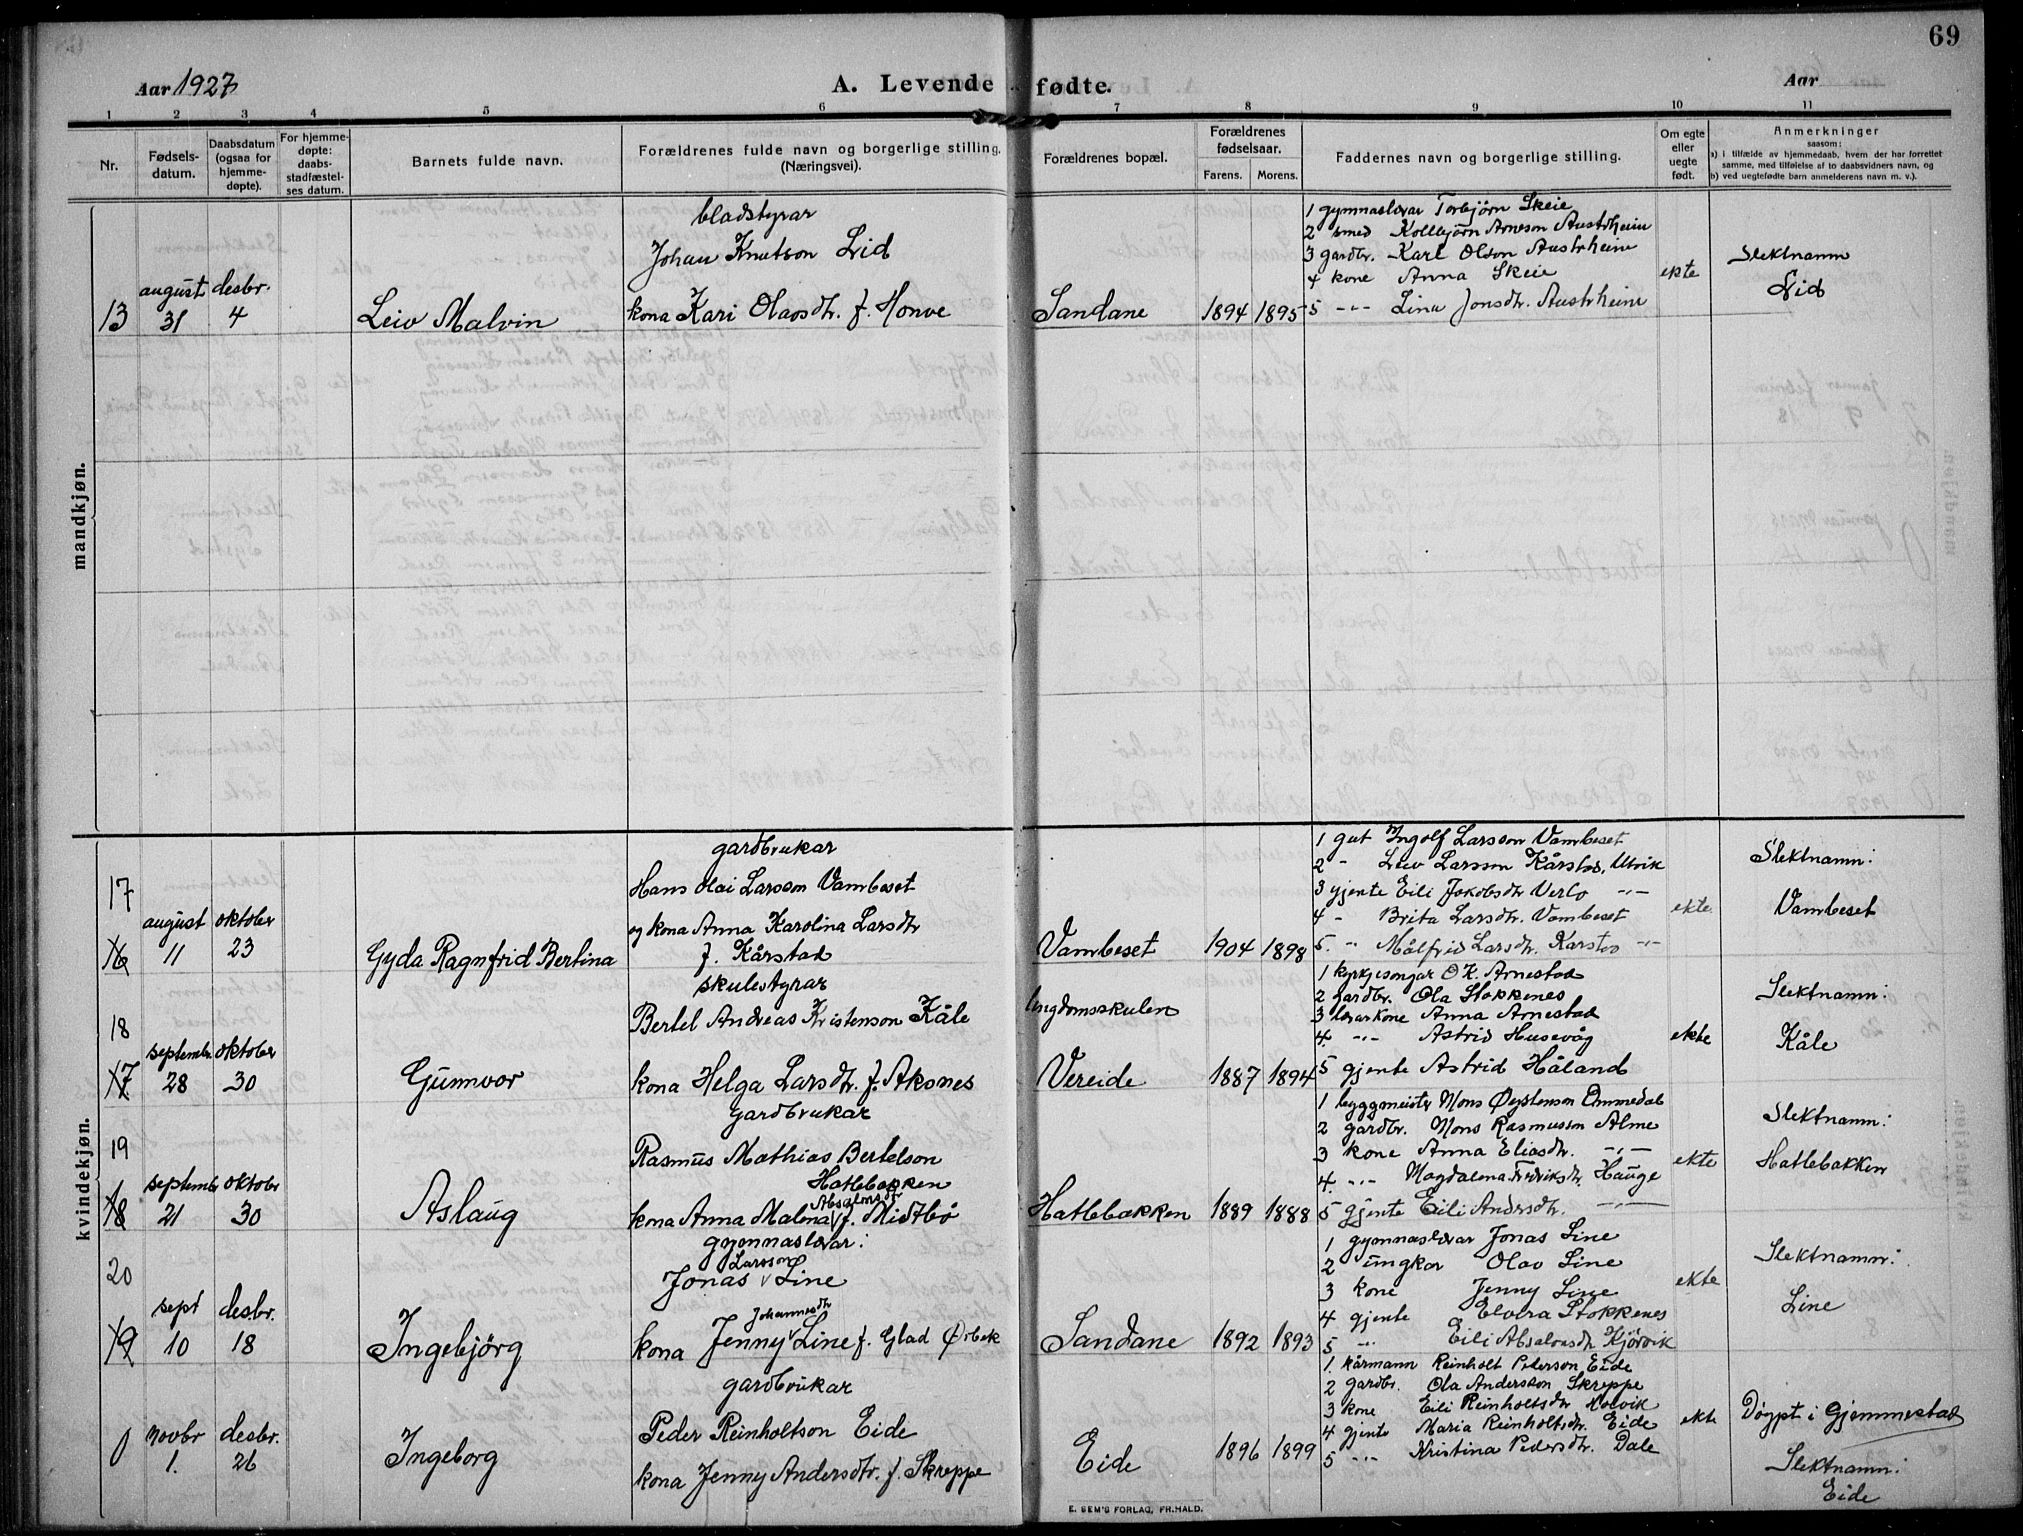 69
Aar 1927
A. Levende fødte.
Aar
1 2 3 4 5 6 7 8 9 10 11
Nr.
Fødsels-
datum.
Daabsdatum
(ogsaa for
hjemme-
døpte).
For hjemme-
døpte:
daabs-
stadfæstel-
ses datum.
Barnets fulde navn.
Forældrenes fulde navn og borgerlige stilling.
(Næringsvei).
Forældrenes bopæl.
Forældrenes
fødselsaar.
Farens. Morens.
Faddernes navn og borgerlige stilling.
Om egte
eller
uegte
født.
Anmerkninger
saasom:
a) i tilfælde av hjemmedaab, hvem der har forrettet
samme, med tilføielse af to daabsvidners navn, og
b) ved uegtefødte barn anmelderens navn m. v.).
mandkjøn.
13
august
31
desbr.
4
Leiv Malvin
bladstyrar
Johan Knutson Lid
kona Kari Olavsdtr. f. Honve
Sandane
1894 1895
1 gymnaslærar Torbjörn Skeie
2 smed Kolbjörn Arneson Austrheim
3 gardbr. Karl Olson Austrheim
4 kone Anna Skeie
5 -"- Lina Jonsdtr. Austrheim
ekte
Slektnamn
Lid
kvindekjøn.
17
16
august
11
oktober
23
Gyda Ragnfrid Bertina
gardbrukar
Hans Olai Larsson Vambeset
og kona Anna Karolina Larsdtr
f. Kårstad
Vambeset
1904 1898
1 gut Ingolf Larsson Vambeset
2 " Leiv Larsson Kårstad, Utvik
3 gjente Eili Jakobsdtr Verlo -"-
4 " Brita Larsdtr. Vambeset
5. " Målfrid Larsdtr. Karstad -"-
ekte
Slektnamn:
Vambeset
18
17
septembr
28
oktober
30
Gunnvor
skulestyrar
Bertel Andreas Kristenson Kåle
kona Helga Larsdtr. f. Aksnes
Ungdomsskulen
Vereide
1887 1894
1 kyrkjesongar O K. Arnestad
2 gardbr. Ola Stokkenes
3 lærarkone Anna Arnestad
4. -"- Astrid Husevåg
5 gjente Astrid Håland
ekte
Slektnamn:
Kåle
19
18
septembr
21
oktobr
30
Aslaug
Gardbrukar
Rasmus Mathias Bertelson
Hatlebakken
Absalmsdtr
kona Anna Malina f. Midtbö
Hatlebakken
1889 1888
1 byggmeister Mons Øystenson Emmedal
2 gardbr. Mons Rasmusson Alme
3 kone Anna Eliasdtr. -"-
4. -"- Magdalena Fredriksdtr. Hauge
5 gjente Eili Andersdtr. -"-
ekte
Slektnamn:
Hatlebakken
20
19
sept
10
desbr.
18
Ingebjörg
gymnaslærar:
Larsson
Jonas Line
Johannesdtr
kona Jenny Line f. Glad Ørbek
Sandane
1892 1893
1 gymnaslærar Jonas Line
2 ungkar Olav Line
3 kone Jenny Line
4 gjente Elvira Stokkenes
5 -"- Eili Absalonsdtr Kjörvik
ekte
Slektnamn:
Line
0
novbr
1.
desbr.
26
Ingeborg
gardbrukar
Peder Reinholtson Eide
kona Jenny Andersdtr. f. Skreppe
Eide
1896 1899
1. kårmann Reinholt Pederson Eide
2 gardbr. Ola Andersson Skreppe
3 kone Eili Reinholtsdtr Holvik
4 gjente Maria Reinholtsdtr. Eide
5 -"- Kristina Pedersdtr. Dale
ekte
Døypt i Gjemmestad
Slektnamn:
Eide
E. SEM'S FORLAG, FR.HALD.